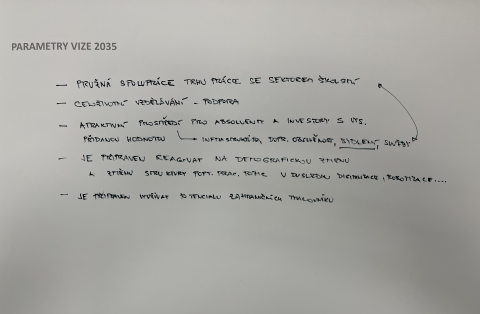 PARAMETRY VIZE 2035
— PRUŽNÁ SPOLUPRÁCE TRHU PRÁCE SE SEKTOREM ŠKOLSTVÍ
— CELOŽIVOTNÍ VZDĚLÁVÁNÍ - PODPORA
— ATRAKTIVNÍ PROSTŘEDÍ PRO ABSOLVENTY A INVESTORY S VYS.
PŘIDANOU HODNOTOU → INFRASTRUKTURA, DOPR. OBSLUŽNOST, BYDLENÍ, SLUŽBY
— JE PŘIPRAVEN REAGOVAT NA DEMOGRAFICKOU ZMĚNU
A ZMĚNU STRUKTURY POPT. PRAC. POZIC V DŮSLEDKU DIGITALIZACE, ROBOTIZACE....
— JE PŘIPRAVEN VYUŽÍVAT POTENCIÁLU ZAHRANIČNÍCH PRACOVNÍKŮ